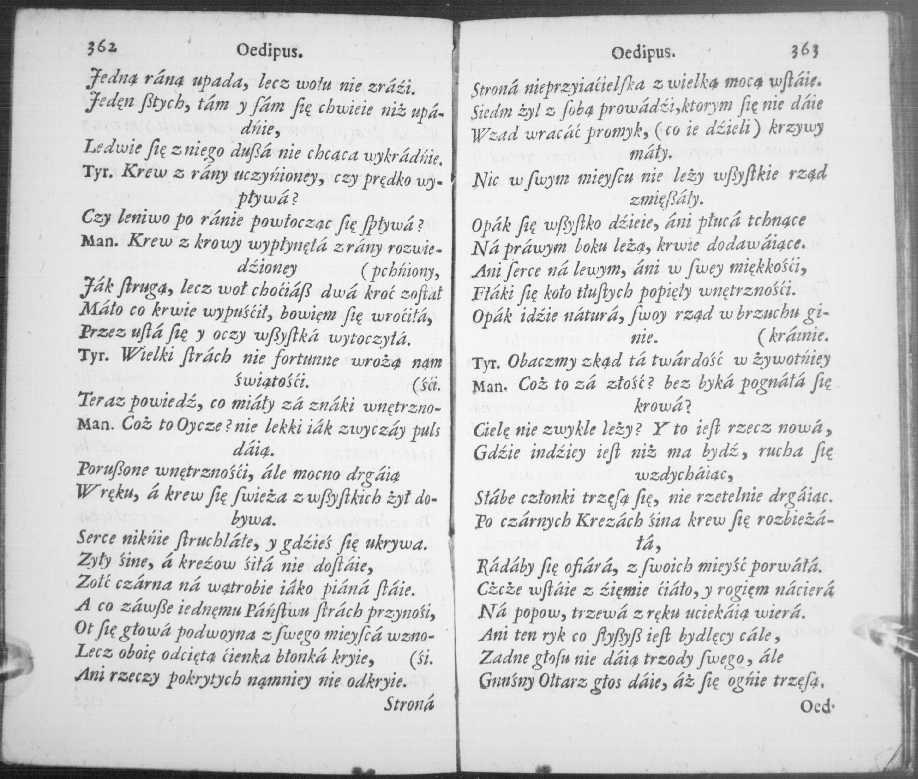 362 Oedipus.
Jedną ráną upada, lecz wołu nie zráźi.
Jedęn ſztych, tám y ſám ſię chwieie niż upá-
dńie,
Ledwie ſię z niego duſzá nie chcąca wykrádńie.
Tyr. Krew z rány uczyńioney, czy prędko wy-
pływá?
Czy leniwo po ránie powłocząc ſię ſpływá?
Man. Krew z krowy wypłynęłá z rány rozwie-
dźioney (pchńiony,
Ják ſtrugą, lecz woł choćiáſz dwá kroć zoſtał
Máło co krwie wypuśćił, bowięm ſię wroćiłá,
Przez uſtá ſię y oczy wſzyſtká wytoczyłá.
Tyr. Wielki ſtrách nie fortunne wrożą nąm
świątośći. (śći.
Teraz powiedź, co miáły zá znáki wnętrzno-
Man. Coż to Oycze? nie lekki iák zwyczáy puls
dáią.
Poruſzone wnętrznośći, ále mocno drgáią
W ręku, á krew ſię ſwieża z wſzyſtkich żył do-
bywa.
Serce nikńie ſtruchláłe, y gdźieś ſię ukrywa.
Zyły śine, á kreżow śiłá nie doſtáie,
Zołć czárna ná wątrobie iáko piáná ſtáie.
A co záwſze iednęmu Páńſtwu ſtrách przynośi,
Ot ſię głowá podwoyna z ſwego mieyſcá wzno-
Lecz oboię odciętą ćienka błonká kryie, (śi.
Ani rzeczy pokrytych nąmniey nie odkryie.
Stroná
Oedipus. 363
Stroná nieprzyiaćielſka z wielką mocą wſtáie.
Siedm żył z ſobą prowádźi, ktorym ſię nie dáie
Wzad wracáć promyk, (co ie dźieli) krzywy
máły.
Nic w ſwym mieyſcu nie leży wſzyſtkie rząd
zmięſzáły.
Opák ſię wſzyſtko dźieie, áni płucá tchnące
Ná práwym boku leżą, krwie dodawáiące.
Ani ſerce ná lewym, áni w ſwey miękkośći,
Fłáki ſię koło tłuſtych popięły wnętrznośći.
Opák idźie náturá, ſwoy rząd w brzuchu gi-
nie. (kráinie.
Tyr. Obaczmy zkąd tá twárdość w żywotńiey
Man. Coż to zá złość? bez byká pognáłá ſię
krowá?
Cielę nie zwykle leży? Y to ieſt rzecz nowá,
Gdźie indźiey ieſt niż ma bydź, rucha ſię
wzdycháiąc,
Słábe członki trzęſą ſię, nie rzetelnie drgáiąc.
Po czárnych Krezách śina krew ſię rozbieżá-
łá,
Rádáby ſię ofiárá, z ſwoich mieyść porwáłá.
Cżcże wſtáie z źięmie ćiáło, y rogięm náćierá
Ná popow, trzewá z ręku uciekáią wierá.
Ani ten ryk co ſłyſzyſz ieſt bydlęcy cále,
Zadne głoſu nie dáią trzody ſwego, ále
Gnuśny Ołtarz głos dáie, áż ſię ogńie trzęſą.
Oed-